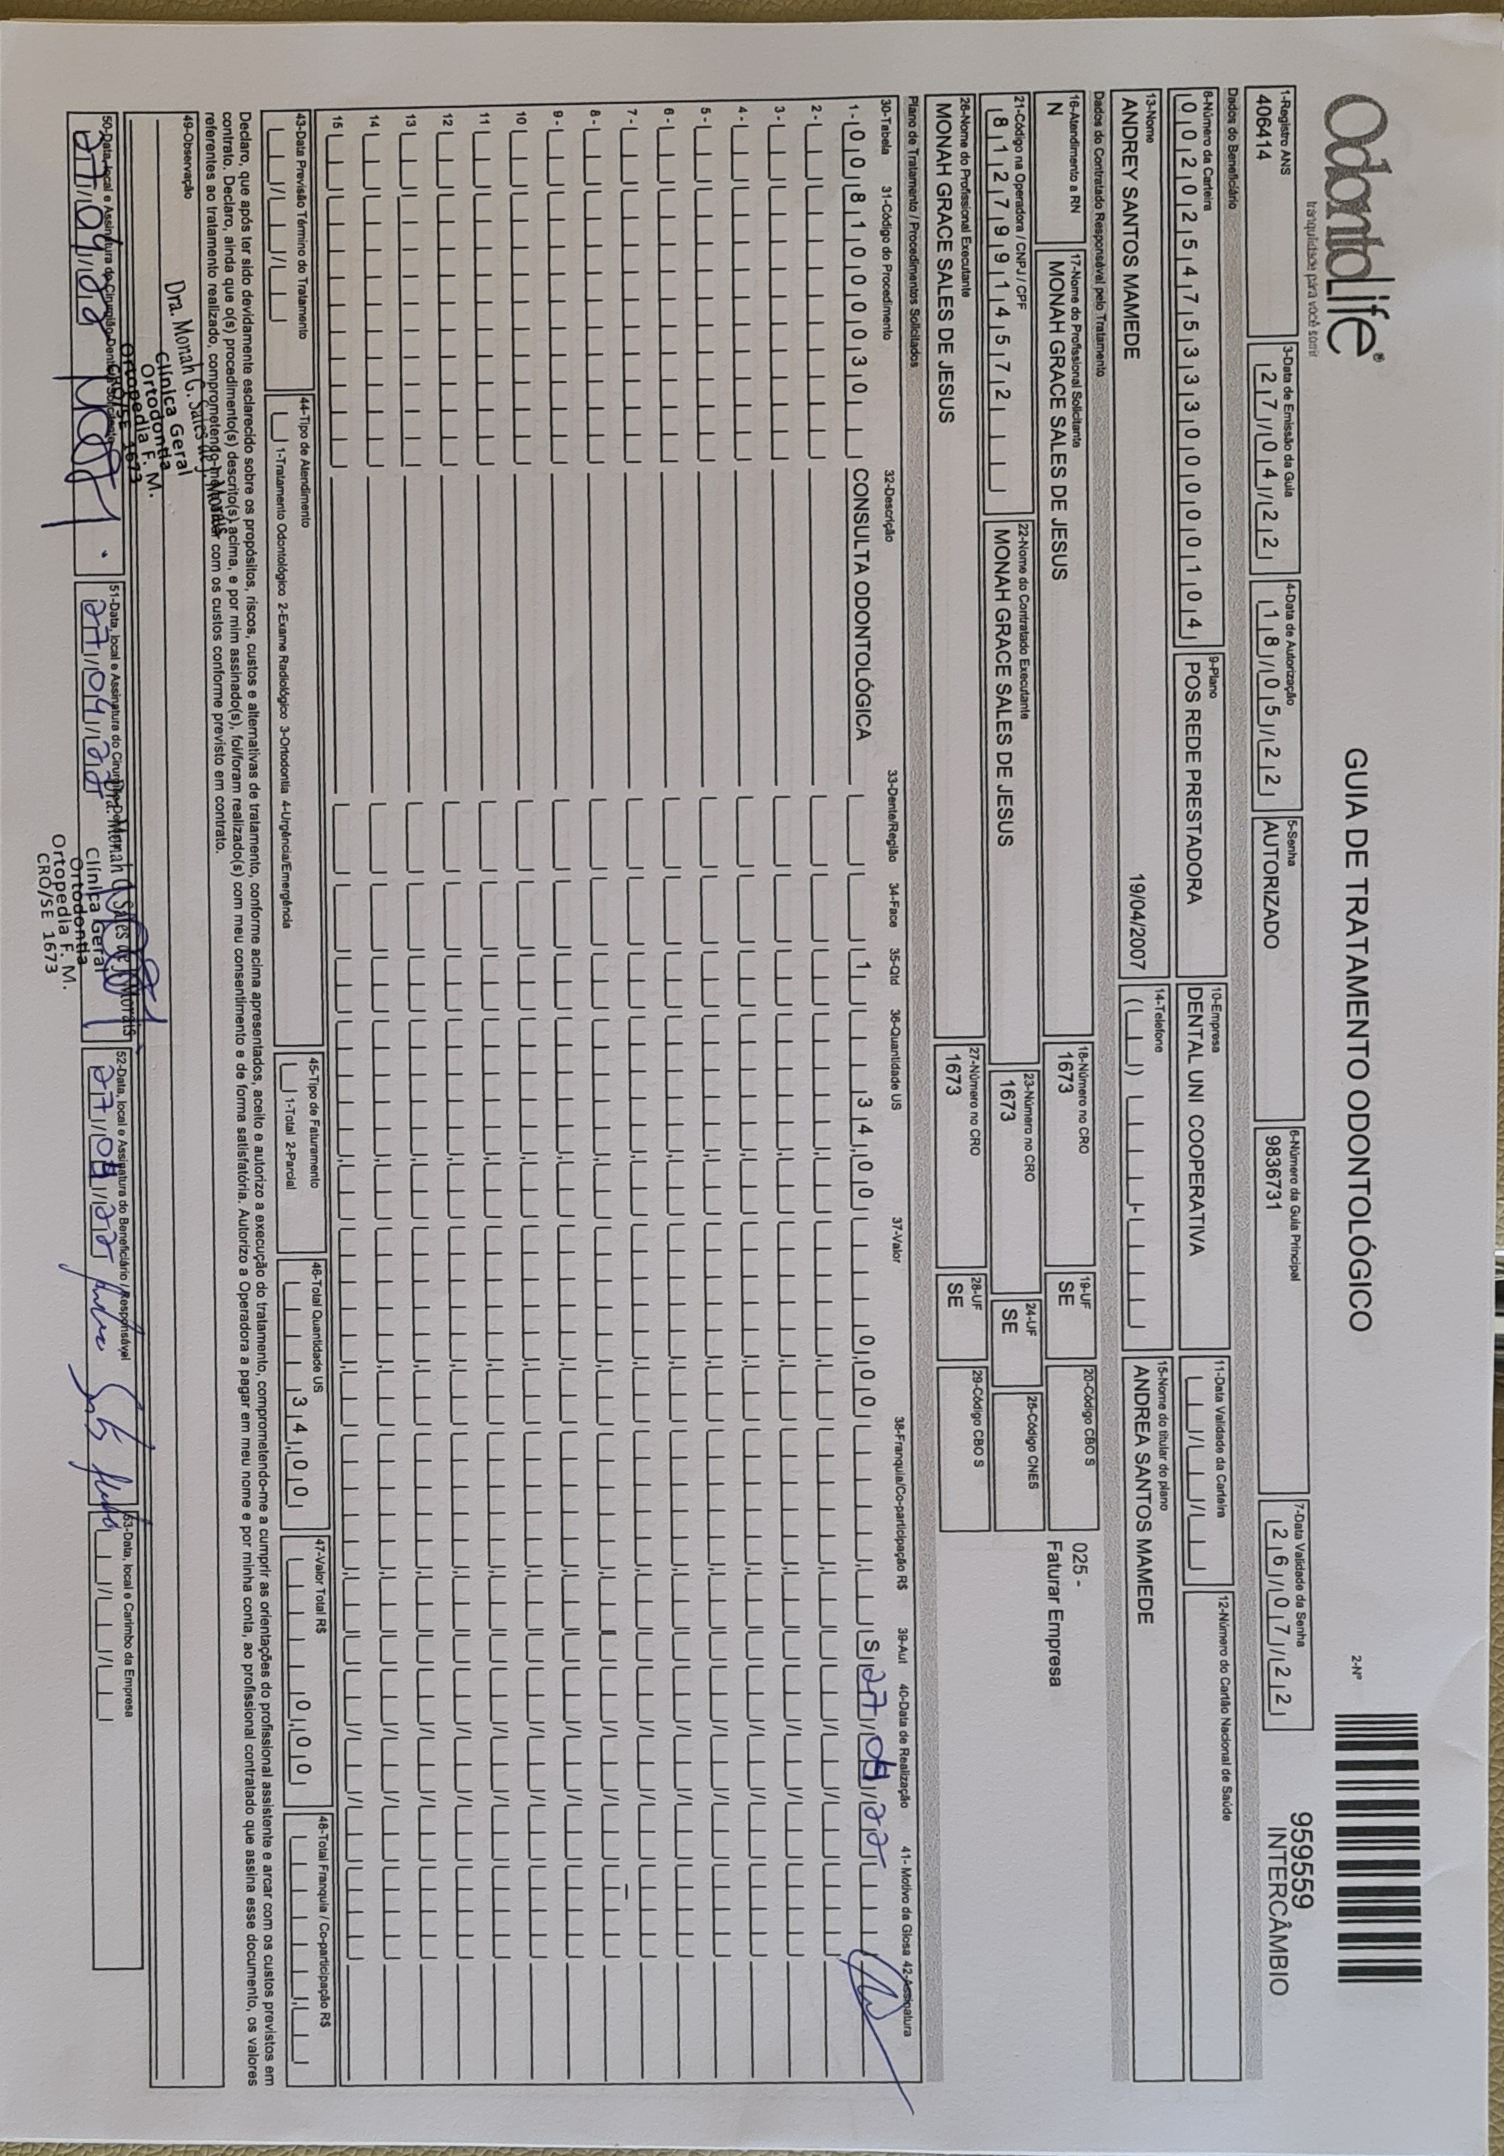 OdontoLife®
tranquilidade para você sorrir
GUIA DE TRATAMENTO ODONTOLÓGICO
2-Nº
959559
INTERCÂMBIO
1-Registro ANS
406414
3-Data de Emissão da Guia
27/04/22
4-Data de Autorização
18/05/22
5-Senha
AUTORIZADO
6-Número da Guia Principal
9836731
7-Data Validade da Senha
26/07/22
Dados do Beneficiário
8-Número da Carteira
00202547533300000104
9-Plano
POS REDE PRESTADORA
10-Empresa
DENTAL UNI COOPERATIVA
11-Data Validade da Carteira
12-Número do Cartão Nacional de Saúde
13-Nome
ANDREY SANTOS MAMEDE
19/04/2007
14-Telefone
15-Nome do titular do plano
ANDREA SANTOS MAMEDE
Dados do Contratado Responsável pelo Tratamento
16-Atendimento a RN
N
17-Nome do Profissional Solicitante
MONAH GRACE SALES DE JESUS
18-Número no CRO
1673
19-UF
SE
20-Código CBO S
025 -
Faturar Empresa
21-Código na Operadora / CNPJ / CPF
81279914572
22-Nome do Contratado Executante
MONAH GRACE SALES DE JESUS
23-Número no CRO
1673
24-UF
SE
25-Código CNES
26-Nome do Profissional Executante
MONAH GRACE SALES DE JESUS
27-Número no CRO
1673
28-UF
SE
29-Código CBO S
Plano de Tratamento / Procedimentos Solicitados
30-Tabela 31-Código do Procedimento 32-Descrição 33-Dente/Região 34-Face 35-Qtd 36-Quantidade US 37-Valor 38-Franquia/Co-participação R$ 39-Aut 40-Data de Realização 41- Motivo da Glosa 42-Assinatura
1- 00 81000030 CONSULTA ODONTOLÓGICA 1 34,00 0,00 S 27/04/22
2-
3-
4-
5-
6-
7-
8-
9-
10
11
12
13
14
15
43-Data Previsão Término do Tratamento
44-Tipo de Atendimento
1-Tratamento Odontológico 2-Exame Radiológico 3-Ortodontia 4-Urgência/Emergência
45-Tipo de Faturamento
1-Total 2-Parcial
46-Total Quantidade US
34,00
47-Valor Total R$
0,00
48-Total Franquia / Co-participação R$
Declaro, que após ter sido devidamente esclarecido sobre os propósitos, riscos, custos e alternativas de tratamento, conforme acima apresentados, aceito e autorizo a execução do tratamento, comprometendo-me a cumprir as orientações do profissional assistente e arcar com os custos previstos em
contrato. Declaro, ainda que o(s) procedimento(s) descrito(s) acima, e por mim assinado(s), foi/foram realizado(s) com meu consentimento e de forma satisfatória. Autorizo a Operadora a pagar em meu nome e por minha conta, ao profissional contratado que assina esse documento, os valores
referentes ao tratamento realizado, comprometendo-me a arcar com os custos conforme previsto em contrato.
49-Observação
Dra. Monah G. Sales de J. Morais
Clínica Geral
Ortodontia
Ortopedia F. M.
CRO/SE 1673
50-Data, local e Assinatura do Cirurgião-Dentista Solicitante
27/04/22
51-Data, local e Assinatura do Cirurgião-Dentista
27/04/22
Dra. Monah G. Sales de J. Morais
Clínica Geral
Ortodontia
Ortopedia F. M.
CRO/SE 1673
52-Data, local e Assinatura do Beneficiário / Responsável
27/04/22
53-Data, local e Carimbo da Empresa